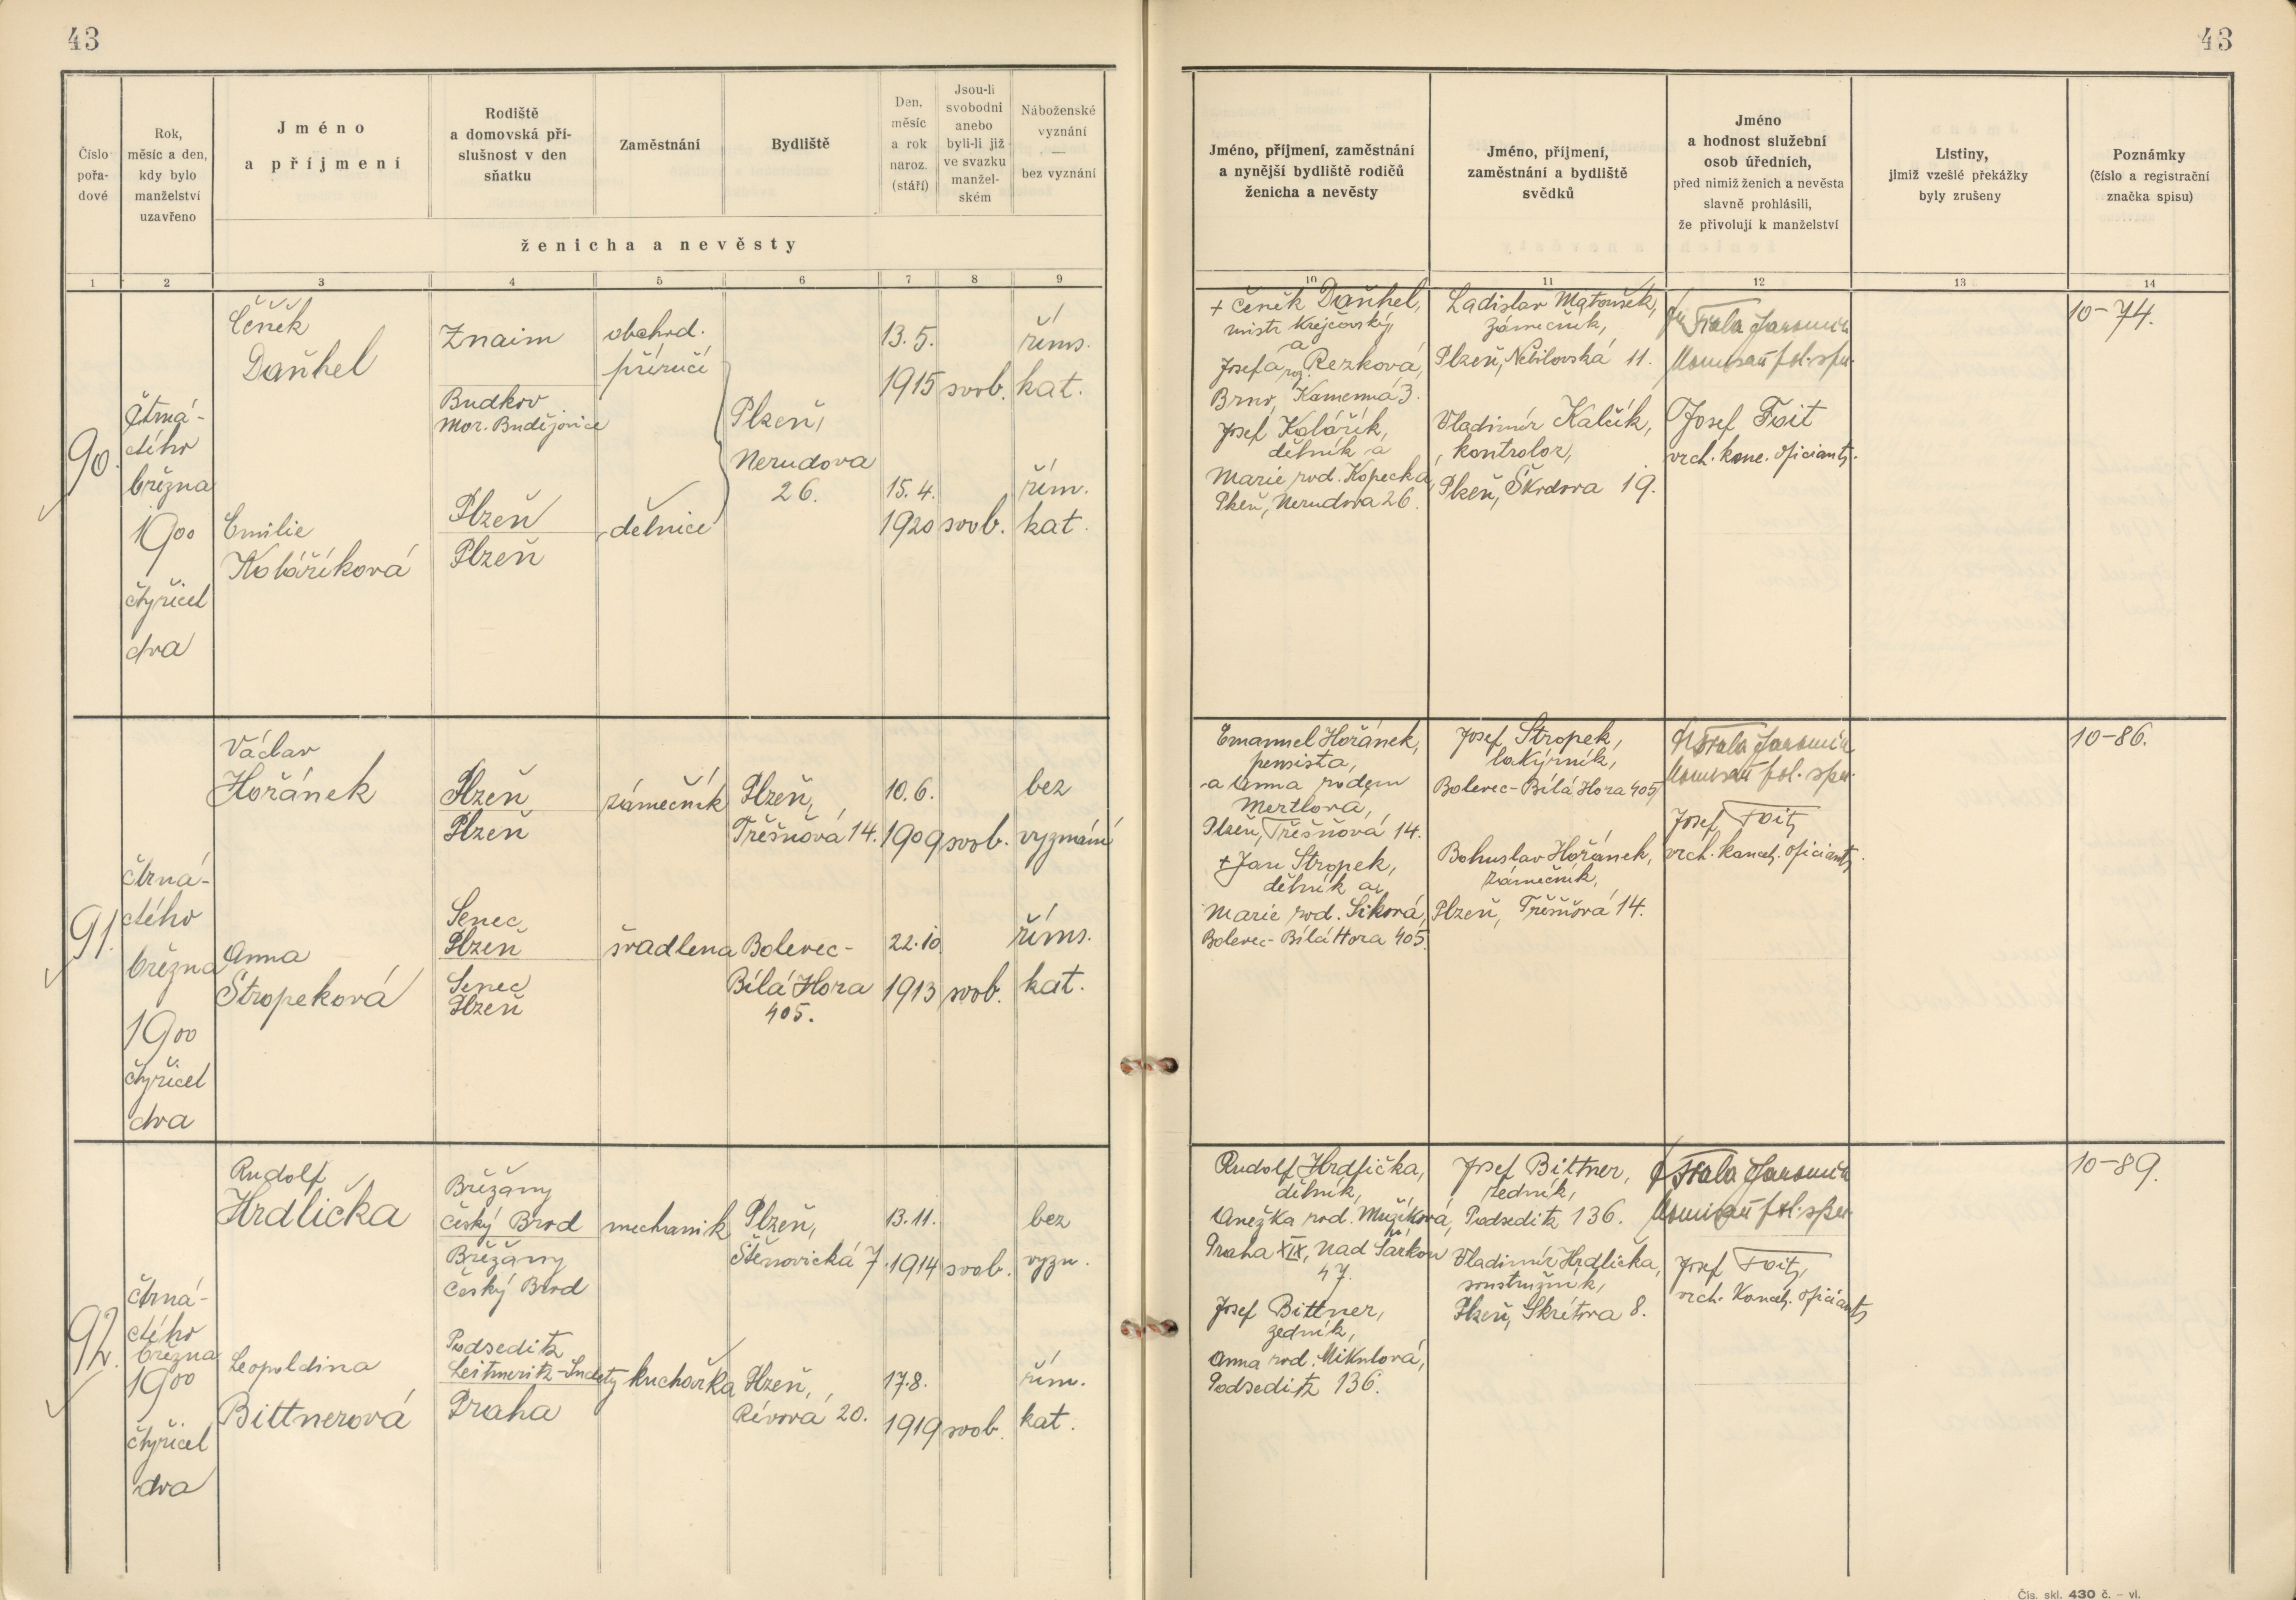 43
43
Číslo
pořa-
dové
Rok,
měsíc a den,
kdy bylo
manželství
uzavřeno
Jméno
a příjmení
Rodiště
a domovská pří-
slušnost v den
sňatku
Zaměstnání
Bydliště
Den,
měsíc
a rok
naroz.
(stáří)
Jsou-li
svobodni
anebo
byli-li již
ve svazku
manžel-
ském
Náboženské
vyznání
—
bez vyznání
ženicha a nevěsty
Jméno, příjmení, zaměstnání
a nynější bydliště rodičů
ženicha a nevěsty
Jméno, příjmení,
zaměstnání a bydliště
svědků
Jméno
a hodnost služební
osob úředních,
před nimiž ženich a nevěsta
slavně prohlásili,
že přivolují k manželství
Listiny,
jimiž vzešlé překážky
byly zrušeny
Poznámky
(číslo a registrační
značka spisu)
1 2 3 4 5 6 7 8 9 10 11 12 13 14
90.
čtrná-
ctého
března
1900
čtyřicet
dva
Čeněk
Daňhel
Znaim
Budkov
Mor. Budějovice
obchod.
příručí
Plzeň,
Nerudova
26.
13. 5.
1915
svob.
říms.
kat.
Emilie
Kolaříková
Plzeň
Plzeň
dělnice
15. 4.
1920
svob.
řím.
kat.
+ Čeněk Daňhel,
mistr krejčovský,
a
Josefa roz. Rezková,
Brno, Kamenná 3.
Josef Kolářík,
dělník a
Marie rod. Kopecká,
Plzeň, Nerudova 26.
Ladislav Matoušek,
zámečník,
Plzeň, Nebilovská 11.
Vladimír Kalčík,
kontrolor,
Plzeň, Škodova 19.
Jaromír
Josef Foit
vrch. kanc. oficiant.
10-74.
91.
čtrná-
ctého
března
1900
čtyřicet
dva
Václav
Hořánek
Plzeň
Plzeň
zámečník
Plzeň,
Třešňová 14.
10. 6.
1909
svob.
bez
vyznání
Anna
Stropeková
Senec
Plzeň
Senec
Plzeň
švadlena
Bolevec-
Bílá Hora
405.
22. 10.
1913
svob.
říms.
kat.
Emanuel Hořánek,
pensista,
a Anna rodem
Mertlová,
Plzeň, Třešňová 14.
+ Jan Stropek,
dělník a
Marie rod. Siková,
Bolevec-Bílá Hora 405.
Josef Stropek,
lakýrník,
Bolevec-Bílá Hora 405
Bohuslav Hořánek,
zámečník,
Plzeň, Třešňová 14.
Jaromír
Josef Foit,
vrch. kancel. oficiant.
10-86.
92.
čtrná-
ctého
března
1900
čtyřicet
dva
Rudolf
Hrdlička
Břežany
Český Brod
Břežany
Český Brod
mechanik
Plzeň,
Štěnovická 7.
13. 11.
1914
svob.
bez
vyzn.
Leopoldina
Bittnerová
Podseditz
Leitmeritz-Sudety
Praha
kuchařka
Plzeň,
Révová 20.
17. 8.
1919
svob.
řím.
kat.
Rudolf Hrdlička,
dělník,
Anežka rod. Mužíková,
Praha XIX, Nad Šárkou
47.
Josef Bittner,
zedník,
Anna rod. Mikulová,
Podseditz 136.
Josef Bittner,
zedník,
Podseditz 136.
Vladimír Hrdlička,
soustružník,
Plzeň, Skrétova 8.
Jaromír
Josef Foit,
vrch. kancel. oficiant
10-89.
Čís. skl. 430 č. – vl.